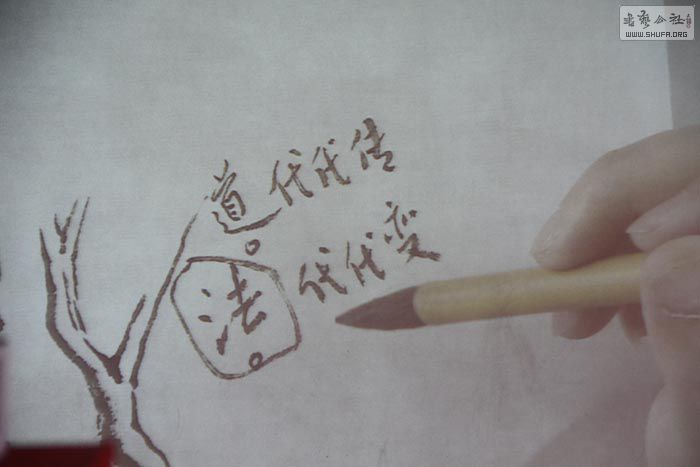 書藝公社
WWW.SHUFA.ORG
道代代传
法代代变